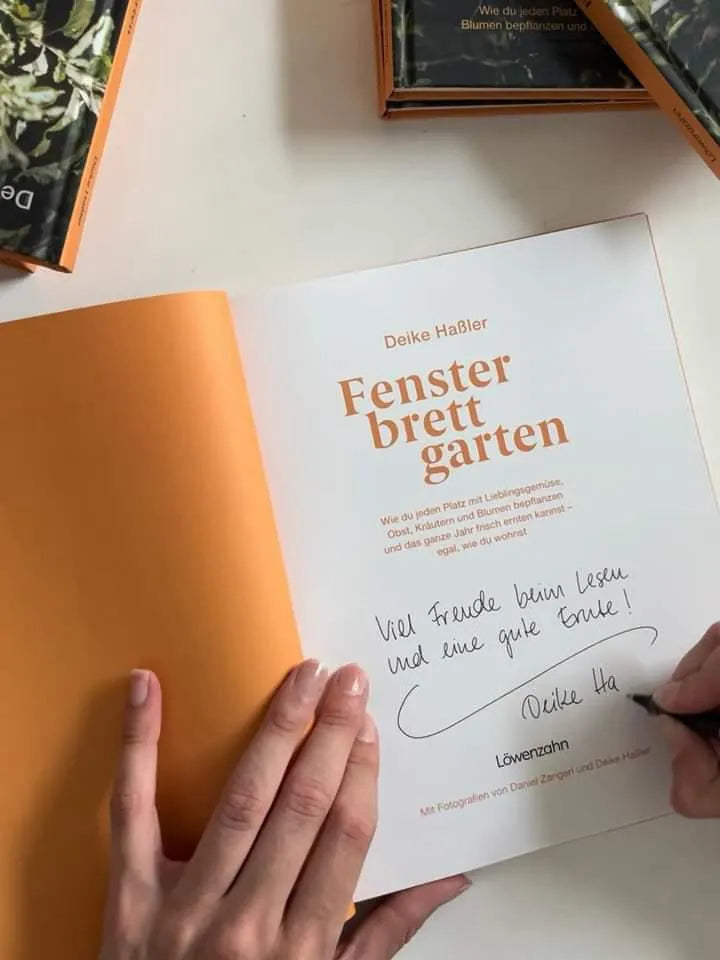 Wie du jeden Platz
Blumen bepflanzen und
Deike Haßler
Fenster
brett
garten
Wie du jeden Platz mit Lieblingsgemüse,
Obst, Kräutern und Blumen bepflanzen
und das ganze Jahr frisch ernten kannst –
egal, wie du wohnst
Viel Freude beim Lesen
und eine gute Ernte!
Deike Ha
Löwenzahn
Mit Fotografien von Daniel Zangerl und Deike Haßler
De
Deike Haßler
Löwenzahn